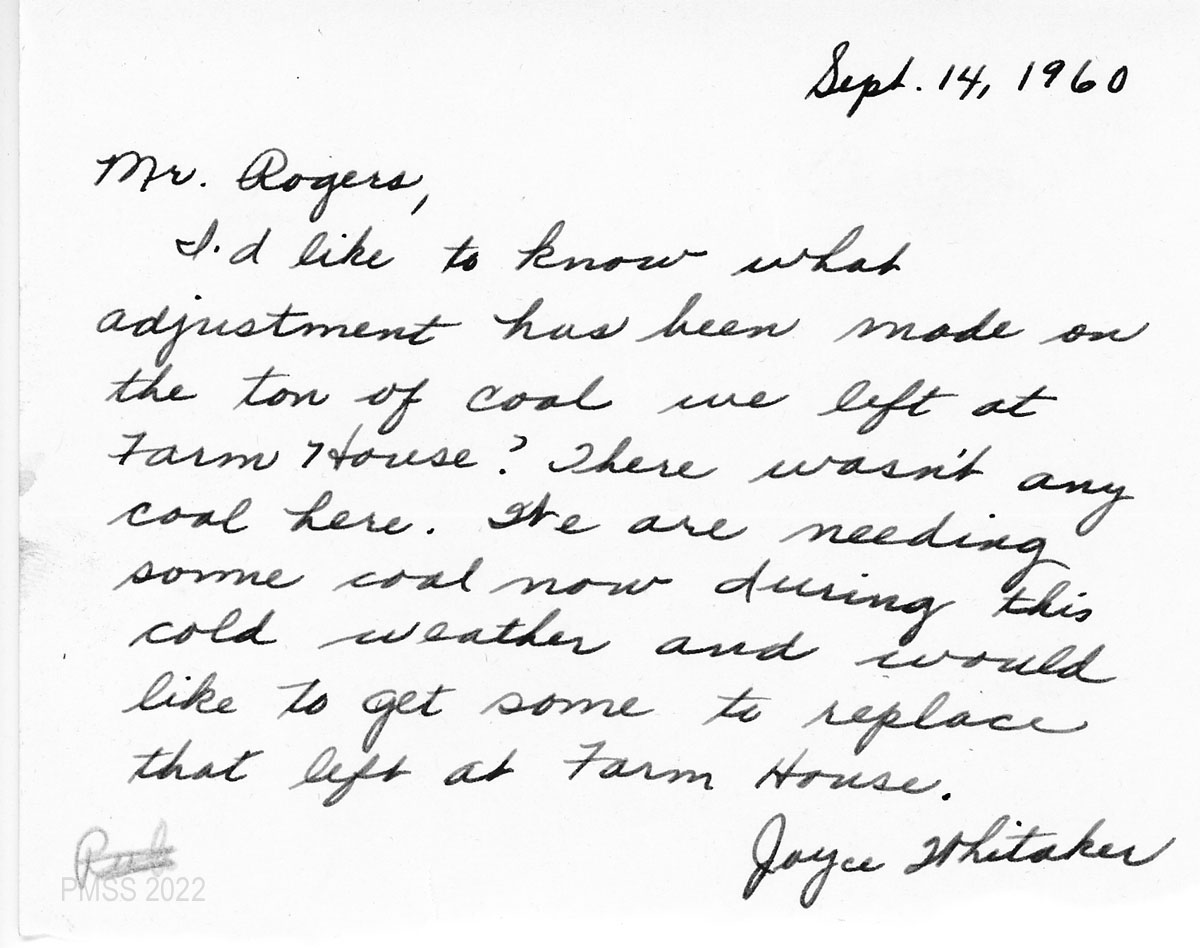 Sept. 14, 1960
Mr. Rogers,
I'd like to know what
adjustment has been made on
the ton of coal we left at
Farm House? There wasn't any
coal here. We are needing
some coal now during this
cold weather and would
like to get some to replace
that left at Farm House.
Joyce Whitaker
PMSS 2022